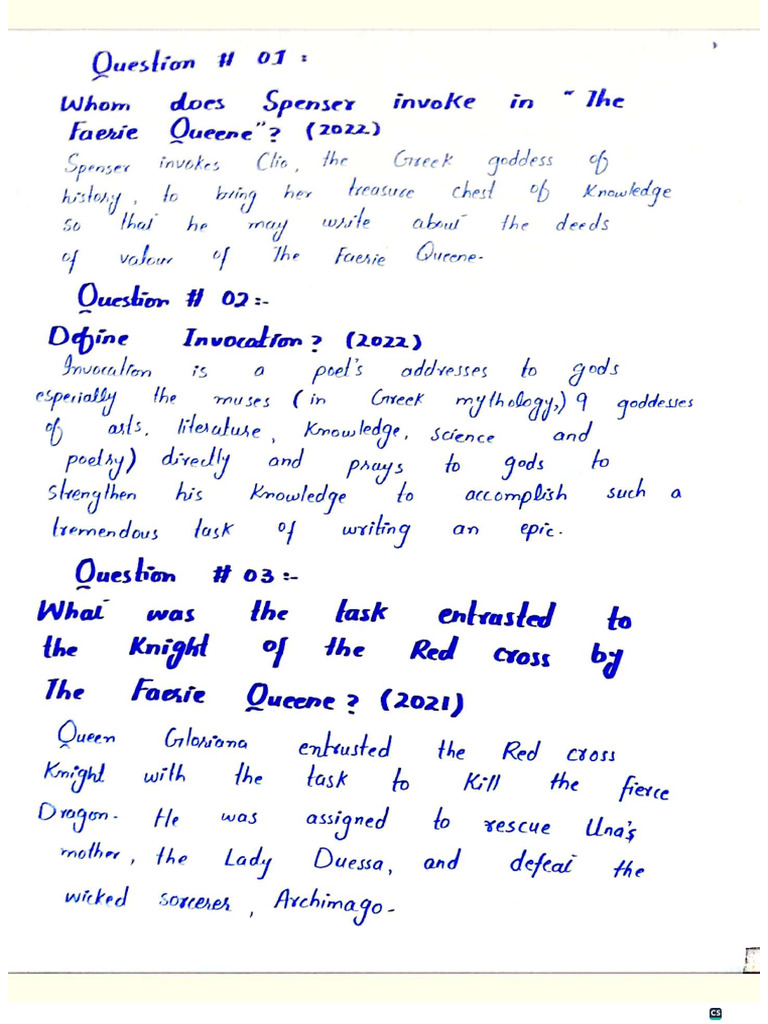 Question # 01:
Whom does Spenser invoke in "The
Faerie Queene"? (2022)
Spenser invokes Clio, the Greek goddess of
history, to bring her treasure chest of Knowledge
so that he may write about the deeds
of valour of The Faerie Queene.
Question # 02:-
Define Invocation? (2022)
Invocation is a poet's addresses to gods
especially the muses (in Greek mythology,) 9 goddesses
of arts, literature, Knowledge, science and
poetry) directly and prays to gods to
strengthen his Knowledge to accomplish such a
tremendous task of writing an epic.
Question # 03:-
What was the task entrusted to
the Knight of the Red cross by
The Faerie Queene? (2021)
Queen Gloriana entrusted the Red cross
Knight with the task to Kill the fierce
Dragon. He was assigned to rescue Una's
mother, the Lady Duessa, and defeat the
wicked sorcerer, Archimago.
CS